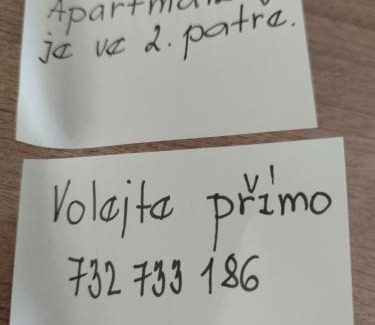 je ve 2. patře.
Volejte přímo
732 733 186